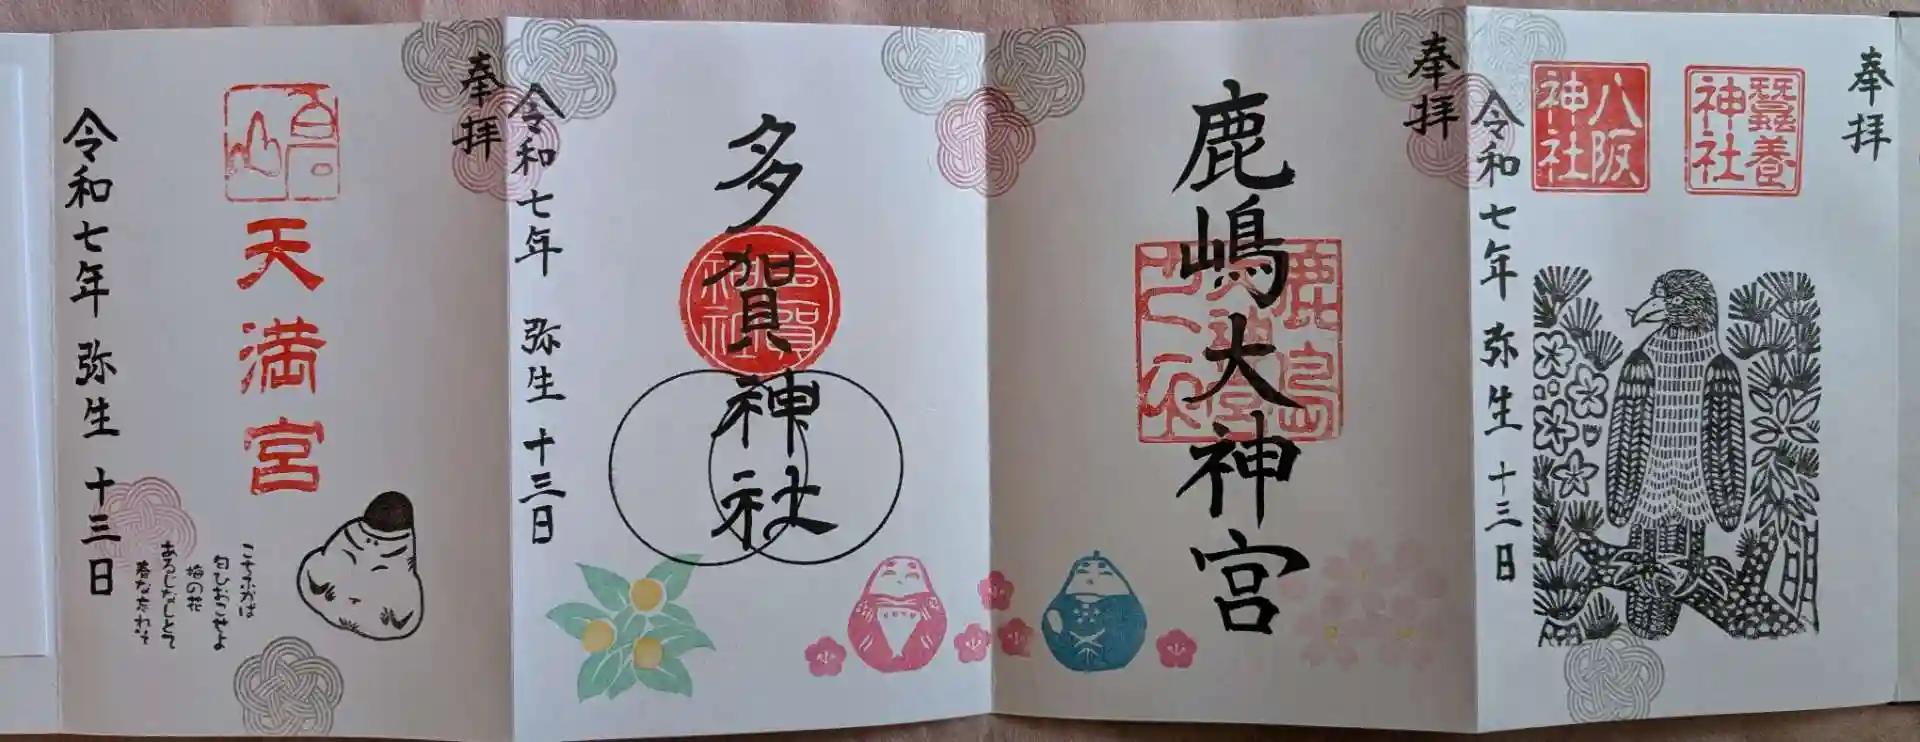 奉拝
蠶養神社
八阪神社
令和七年 弥生 十三日
奉拝
鹿嶋大神宮
多賀神社
多賀神社
令和七年 弥生 十三日
奉拝
天満宮
こちふかば
匂ひおこせよ
梅の花
あるじなしとて
春なわすれそ
令和七年 弥生 十三日